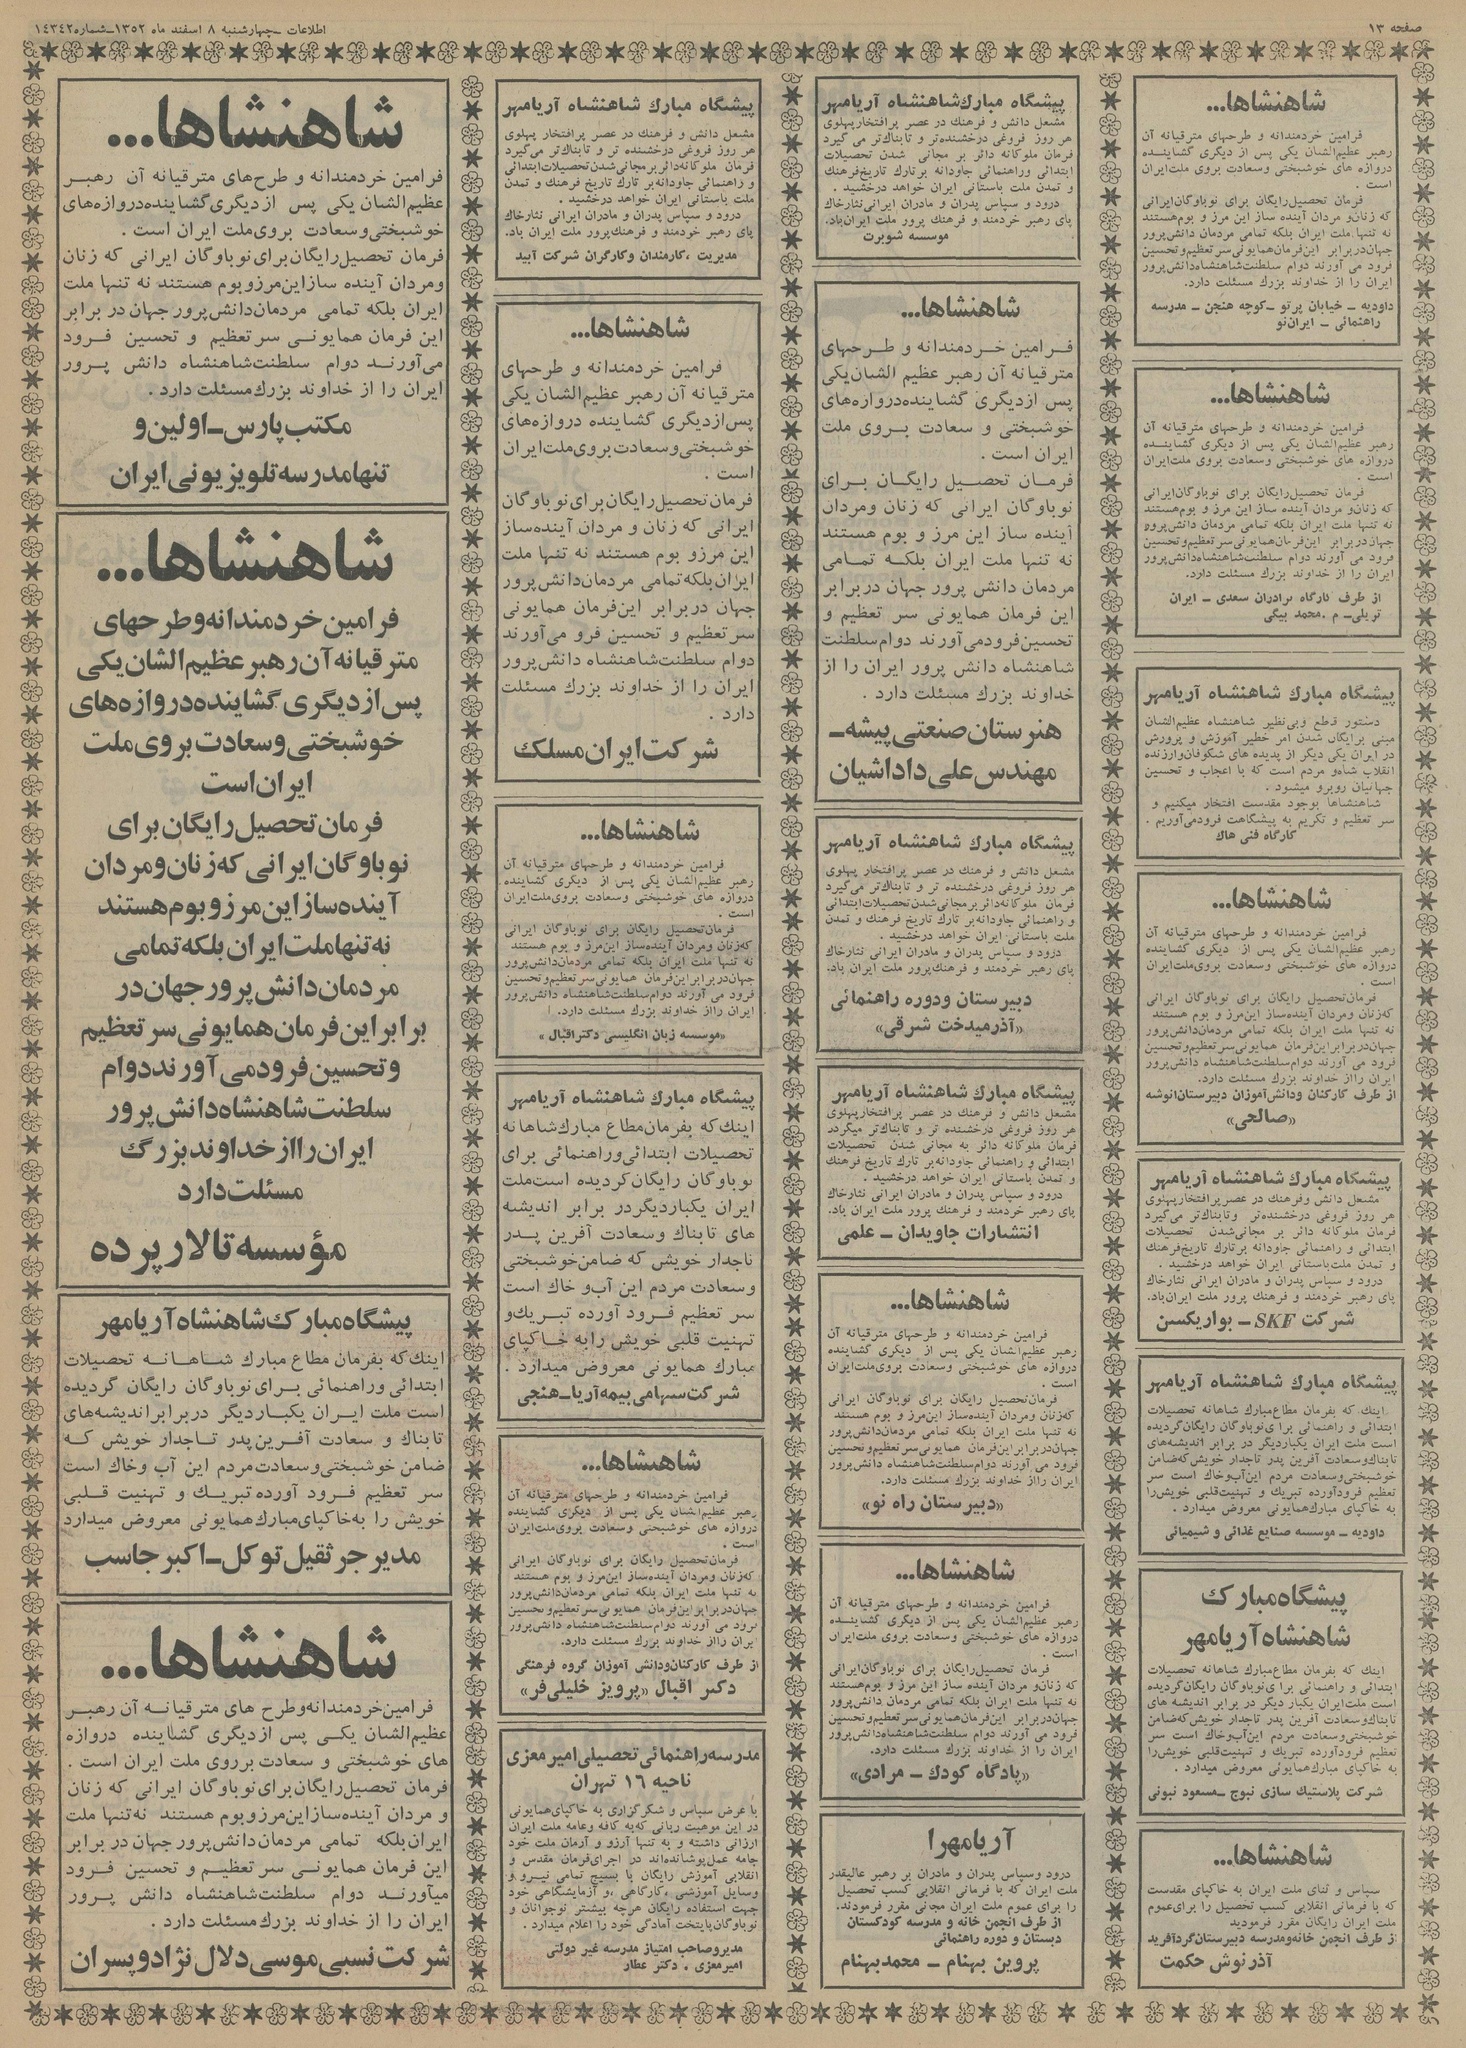 صفحه ۱۳
اطلاعات ـ چهارشنبه ۸ اسفند ماه ۱۳۵۲ـ شماره ۱۴۳۴۲
شاهنشاها...
فرامین خردمندانه و طرحهای مترقیانه آن
رهبر عظیم‌الشان یکی پس از دیگری گشاینده
دروازه های خوشبختی وسعادت بروی ملت ایران
است .
فرمان تحصیل‌رایگان برای نوباوگان‌ایرانی
که زنان‌و مردان آینده ساز این مرز و بوم‌هستند
نه تنها ملت ایران بلکه تمامی مردمان دانش‌پرور
جهان‌در برابر این‌فرمان همایونی سر تعظیم‌و تحسین
فرود می آورند دوام سلطنت‌شاهنشاه‌دانش‌پرور
ایران را از خداوند بزرک مسئلت دارد.
داودیه ـ خیابان پرتو ـ کوچه هنجن ـ مدرسه
راهنمائی ـ ایران‌نو
شاهنشاها...
فرامین خردمندانه و طرحهای مترقیانه آن
رهبر عظیم‌الشان یکی پس از دیگری گشاینده
دروازه های خوشبختی وسعادت بروی ملت‌ایران
است .
فرمان تحصیل‌رایگان برای نوباوگان ایرانی
که زنان‌و مردان آینده ساز این مرز و بوم‌هستند
نه تنها ملت ایران بلکه تمامی مردمان دانش‌پرور
جهان‌در برابر این‌فرمان‌همایونی سر تعظیم‌و تحسین
فرود می آورند دوام سلطنت‌شاهنشاه‌دانش‌پرور
ایران را از خداوند بزرک مسئلت دارد.
از طرف کارگاه برادران سعدی ـ ایران
تریلی ـ م . محمد بیگی
پیشگاه مبارك شاهنشاه آریامهر
دستور قاطع وبی‌نظیر شاهنشاه عظیم‌الشان
مبنی برایگان شدن امر خطیر آموزش و پرورش
در ایران یکی دیگر از پدیده های شکوفان‌وارزنده
انقلاب شاه‌و مردم است که با اعجاب و تحسین
جهانیان روبرو میشود .
شاهنشاها بوجود مقدست افتخار میکنیم و
سر تعظیم و تکریم به پیشگاهت فرودمی‌آوریم .
کارگاه فنی هاك
شاهنشاها...
فرامین خردمندانه و طرحهای مترقیانه آن
رهبر عظیم‌الشان یکی پس از دیگری گشاینده
دروازه های خوشبختی وسعادت بروی‌ملت‌ایران
است .
فرمان‌تحصیل رایگان برای نوباوگان ایرانی
که‌زنان ومردان آینده‌ساز این‌مرز و بوم هستند
نه تنها ملت ایران بلکه تمامی مردمان‌دانش‌پرور
جهان‌در برابر این‌فرمان همایونی‌سر تعظیم‌و‌تحسین
فرود می آورند دوام‌سلطنت‌شاهنشاه دانش‌پرور
ایران رااز خداوند بزرک مسئلت دارد.
از طرف کارکنان ودانش‌آموزان دبیرستان‌انوشه
«صالحی»
پیشگاه مبارك شاهنشاه آریامهر
مشعل دانش وفرهنك در عصر پرافتخارپهلوی
هر روز فروغی درخشنده‌تر وتابناك‌تر می‌گیرد
فرمان ملوکانه دائر بر مجانی‌شدن تحصیلات
ابتدائی و راهنمائی جاودانه برتارك تاریخ‌فرهنك
و تمدن ملت‌باستانی ایران خواهد درخشید .
درود و سپاس پدران و مادران ایرانی نثارخاك
پای رهبر خردمند و فرهنك پرور ملت ایران‌باد.
شرکت SKF ـ بواریکسن
پیشگاه مبارك شاهنشاه آریامهر
اینك که بفرمان مطاع‌مبارك شاهانه تحصیلات
ابتدائی و راهنمائی برا ی‌نوباوگان رایگان‌گردیده
است ملت ایران یکباردیگر در برابر اندیشه‌های
تابناك‌وسعادت آفرین پدر تاجدار خویش‌که‌ضامن
خوشبختی‌وسعادت مردم این‌آب‌وخاك است سر
تعظیم فرودآورده تبریك و تهنیت‌قلبی خویش‌را
به خاکپای مبارك‌همایونی معروض میدارد .
داودیه ـ موسسه صنایع غذائی و شیمیائی
پیشگاه‌مبارك
شاهنشاه‌آریامهر
اینك که بفرمان مطاع‌مبارك شاهانه تحصیلات
ابتدائی و راهنمائی برای نوباوگان رایگان‌گردیده
است ملت‌ایران یکبار دیگر در برابر اندیشه های
تابناك‌وسعادت آفرین پدر تاجدار خویش‌که‌ضامن
خوشبختی‌وسعادت مردم این‌آب‌وخاك است سر
تعظیم فرودآورده تبریك و تهنیت‌قلبی خویش‌را
به خاکپای مبارك‌همایونی معروض میدارد .
شرکت پلاستیك سازی نیوج ـ مسعود نیونی
شاهنشاها...
سپاس و ثنای ملت ایران به خاکپای مقدست
که با فرمانی انقلابی کسب تحصیل را برای‌عموم
ملت ایران رایگان مقرر فرمودید
از طرف انجمن خانه‌ومدرسه دبیرستان‌گردآفرید
آذرنوش حکمت
پیشگاه مبارك شاهنشاه آریامهر
مشعل دانش و فرهنك در عصر پرافتخارپهلوی
هر روز فروغی درخشنده‌تر و تابناك‌تر می گیرد
فرمان ملوکانه دائر بر مجانی شدن تحصیلات
ابتدائی وراهنمائی جاودانه برتارك تاریخ‌فرهنك
و تمدن ملت باستانی ایران خواهد درخشید .
درود و سپاس پدران و مادران ایرانی نثارخاك
پای رهبر خردمند و فرهنك پرور ملت ایران‌باد.
موسسه شوبرت
شاهنشاها...
فرامین خردمندانه و طرحهای
مترقیانه آن رهبر عظیم الشان‌یکی
پس ازدیگری گشاینده‌دروازه‌های
خوشبختی و سعادت بروی ملت
ایران است .
فرمان تحصیل رایگان برای
نوباوگان ایرانی که زنان ومردان
آینده ساز این مرز و بوم هستند
نه تنها ملت ایران بلکه تمامی
مردمان دانش پرور جهان دربرابر
این فرمان همایونی سر تعظیم و
تحسین‌فرودمی‌آورند دوام‌سلطنت
شاهنشاه دانش پرور ایران را از
خداوند بزرك مسئلت دارد .
هنرستان صنعتی پیشه‌ـ
مهندس علی داداشیان
پیشگاه مبارك شاهنشاه آریامهر
مشعل دانش و فرهنك در عصر پرافتخار پهلوی
هر روز فروغی درخشنده تر و تابناك‌تر می‌گیرد
فرمان ملوکانه دائر برمجانی‌شدن‌تحصیلات‌ابتدائی
و راهنمائی جاودانه بر تارك تاریخ فرهنك و تمدن
ملت باستانی ایران خواهد درخشید .
درود و سپاس پدران و مادران ایرانی نثارخاك
پای رهبر خردمند و فرهنك‌پرور ملت ایران باد.
دبیرستان ودوره راهنمائی
«آذرمیدخت شرقی»
پیشگاه مبارك شاهنشاه آریامهر
مشعل دانش و فرهنك در عصر پرافتخارپهلوی
هر روز فروغی درخشنده تر و تابناك‌تر میگیرد
فرمان ملوکانه دائر به مجانی شدن تحصیلات
ابتدائی و راهنمائی جاودانه‌بر تارك تاریخ فرهنك
و تمدن ملت باستانی ایران خواهد درخشید .
درود و سپاس پدران و مادران ایرانی نثارخاك
پای رهبر خردمند و فرهنك پرور ملت ایران باد.
انتشارات جاویدان ـ علمی
شاهنشاها...
فرامین خردمندانه و طرحهای مترقیانه آن
رهبر عظیم‌الشان یکی پس از دیگری گشاینده
دروازه های خوشبختی وسعادت بروی‌ملت‌ایران
است .
فرمان‌تحصیل رایگان برای نوباوگان ایرانی
که‌زنان ومردان آینده‌ساز این‌مرز و بوم هستند
نه تنها ملت ایران بلکه تمامی مردمان‌دانش‌پرور
جهان‌در برابر این‌فرمان همایونی‌سر تعظیم‌وتحسین
فرود می آورند دوام‌سلطنت‌شاهنشاه دانش‌پرور
ایران رااز خداوند بزرک مسئلت دارد.
«دبیرستان راه نو»
شاهنشاها...
فرامین خردمندانه و طرحهای مترقیانه آن
رهبر عظیم‌الشان یکی پس از دیگری گشاینده
دروازه های خوشبختی وسعادت بروی ملت‌ایران
است .
فرمان تحصیل‌رایگان برای نوباوگان‌ایرانی
که زنان‌و مردان آینده ساز این مرز و بوم‌هستند
نه تنها ملت ایران بلکه تمامی مردمان دانش‌پرور
جهان‌در برابر این‌فرمان همایونی‌سر تعظیم‌وتحسین
فرود می آورند دوام سلطنت‌شاهنشاه‌دانش‌پرور
ایران را از خداوند بزرک مسئلت دارد.
«پادگاه کودك ـ مرادی»
آریامهرا
درود وسپاس پدران و مادران بر رهبر عالیقدر
ملت ایران که با فرمانی انقلابی کسب تحصیل
را برای عموم ملت ایران مجانی مقرر فرمودند.
از طرف انجمن خانه و مدرسه کودکستان
دبستان و دوره راهنمائی
پروین بهنام ـ محمدبهنام
پیشگاه مبارك شاهنشاه آریامهر
مشعل دانش و فرهنك در عصر پرافتخار پهلوی
هر روز فروغی درخشنده تر و تابناك‌تر می‌گیرد
فرمان ملوکانه‌دائر بر مجانی‌شدن‌تحصیلات‌ابتدائی
و راهنمائی جاودانه بر تارك تاریخ فرهنك و تمدن
ملت باستانی ایران خواهد درخشید .
درود و سپاس پدران و مادران ایرانی نثارخاك
پای رهبر خردمند و فرهنك‌پرور ملت ایران باد.
مدیریت ،کارمندان وکارگران شرکت آبید
شاهنشاها...
فرامین خردمندانه و طرحهای
مترقیانه آن رهبر عظیم‌الشان یکی
پس‌ازدیگری گشاینده دروازه‌های
خوشبختی‌وسعادت بروی‌ملت‌ایران
است .
فرمان‌تحصیل رایگان‌برای‌نوباوگان
ایرانی که زنان و مردان آینده‌ساز
این مرزو بوم هستند نه تنها ملت
ایران‌بلکه‌تمامی مردمان‌دانش‌پرور
جهان در برابر این‌فرمان همایونی
سر تعظیم و تحسین فرو می‌آورند
دوام سلطنت‌شاهنشاه دانش‌پرور
ایران را از خداوند بزرك مسئلت
دارد .
شرکت ایران مسلك
شاهنشاها...
فرامین خردمندانه و طرحهای مترقیانه آن
رهبر عظیم‌الشان یکی پس از دیگری گشاینده
دروازه های خوشبختی وسعادت بروی‌ملت‌ایران
است .
فرمان‌تحصیل رایگان برای نوباوگان ایرانی
که‌زنان ومردان آینده‌ساز این‌مرز و بوم هستند
نه تنها ملت ایران بلکه تمامی مردمان‌دانش‌پرور
جهان‌در برابر این‌فرمان همایونی‌سر تعظیم‌وتحسین
فرود می آورند دوام‌سلطنت‌شاهنشاه دانش‌پرور
ایران رااز خداوند بزرک مسئلت دارد.
«موسسه زبان انگلیسی دکتر اقبال »
پیشگاه مبارك شاهنشاه آریامهر
اینك‌که بفرمان‌مطاع مبارك‌شاهانه
تحصیلات ابتدائی‌وراهنمائی برای
نوباوگان رایگان‌گردیده است‌ملت
ایران یکباردیگر در برابر اندیشه
های تابناك وسعادت آفرین پدر
تاجدار خویش که ضامن‌خوشبختی
وسعادت مردم این آب‌و خاك است
سر تعظیم فرود آورده تبریك‌و
تهنیت قلبی خویش رابه خاکپای
مبارك همایونی معروض میدارد .
شرکت سهامی بیمه آریا ـ هنجی
شاهنشاها...
فرامین خردمندانه و طرحهای مترقیانه آن
رهبر عظیم‌الشان یکی پس از دیگری گشاینده
دروازه های خوشبختی وسعادت بروی‌ملت‌ایران
است .
فرمان‌تحصیل رایگان برای نوباوگان ایرانی
که‌زنان ومردان آینده‌ساز این‌مرز و بوم هستند
نه تنها ملت ایران بلکه تمامی مردمان‌دانش‌پرور
جهان‌در برابر این‌فرمان همایونی سر تعظیم‌وتحسین
فرود می آورند دوام‌سلطنت‌شاهنشاه دانش‌پرور
ایران رااز خداوند بزرک مسئلت دارد.
از طرف کارکنان‌ودانش آموزان گروه فرهنگی
دکتر اقبال «پرویز خلیلی‌فر»
مدرسه‌راهنمائی تحصیلی امیر معزی
ناحیه ۱۶ تهران
با عرض سپاس و شکرگزاری به خاکپای‌همایونی
در این موهبت ربانی که‌به کافه وعامه ملت ایران
ارزانی داشته و به تنها آرزو و آرمان ملت خود
جامه عمل‌پوشانده‌اند در اجرای‌فرمان مقدس و
انقلابی آموزش رایگان با بسیج تمامی نیرو و
وسایل آموزشی ،کارگاهی ،و آزمایشگاهی خود
جهت استفاده رایگان هرچه بیشتر نوجوانان و
نوباوگان‌پایتخت آمادگی خود را اعلام میدارد .
مدیروصاحب امتیاز مدرسه غیر دولتی
امیرمعزی . دکتر عطار
شاهنشاها...
فرامین خردمندانه و طرح‌های مترقیانه آن رهبر
عظیم‌الشان یکی پس ازدیگری‌گشاینده‌دروازه‌های
خوشبختی‌وسعادت بروی‌ملت ایران است .
فرمان تحصیل رایگان‌برای نوباوگان ایرانی که زنان
ومردان آینده سازاین‌مرزو بوم هستند نه تنها ملت
ایران بلکه تمامی مردمان‌دانش‌پرور جهان در برابر
این فرمان همایونی سر تعظیم و تحسین فرود
می‌آورند دوام سلطنت‌شاهنشاه دانش پرور
ایران را از خداوند بزرك‌مسئلت دارد .
مکتب پارس ـ اولین و
تنهامدرسه تلویزیونی ایران
شاهنشاها...
فرامین خردمندانه‌وطرحهای
مترقیانه آن‌رهبر عظیم‌الشان‌یکی
پس‌ازدیگری گشاینده‌دروازه‌های
خوشبختی‌وسعادت بروی‌ملت
ایران است
فرمان تحصیل رایگان برای
نوباوگان ایرانی که‌زنان‌ومردان
آینده‌سازاین مرزوبوم هستند
نه تنهاملت ایران بلکه تمامی
مردمان دانش پرور جهان در
برابراین فرمان همایونی سر تعظیم
وتحسین فرودمی آورنددوام
سلطنت شاهنشاه دانش پرور
ایران رااز خداوند بزرگ
مسئلت دارد
مؤسسه تالار پرده
پیشگاه‌مبارك‌شاهنشاه‌آریامهر
اینك‌که بفرمان مطاع مبارك شاهانه تحصیلات
ابتدائی وراهنمائی برای نوباوگان رایگان گردیده
است ملت ایران یکباردیگر دربرابراندیشه‌های
تابناك و سعادت آفرین‌پدر تاجدار خویش که
ضامن خوشبختی‌وسعادت‌مردم این آب وخاك است
سر تعظیم فرود آورده تبریك و تهنیت قلبی
خویش را به‌خاکپای‌مبارك‌همایونی معروض میدارد
مدیر جر ثقیل توکل ـ اکبر جاسب
شاهنشاها...
فرامین‌خردمندانه‌وطرح های مترقیانه آن رهبر
عظیم‌الشان یکی پس ازدیگری گشاینده دروازه
های خوشبختی و سعادت برروی ملت ایران است .
فرمان تحصیل‌رایگان‌برای‌نوباوگان ایرانی که زنان
و مردان آینده سازاین‌مرزو بوم هستند نه‌تنها ملت
ایران‌بلکه تمامی مردمان‌دانش‌پرور جهان در برابر
این فرمان همایونی سر تعظیم و تحسین فرود
میآورند دوام سلطنت شاهنشاه دانش پرور
ایران را از خداوند بزرك‌مسئلت دارد .
شرکت نسبی موسی دلال نژاد و پسران